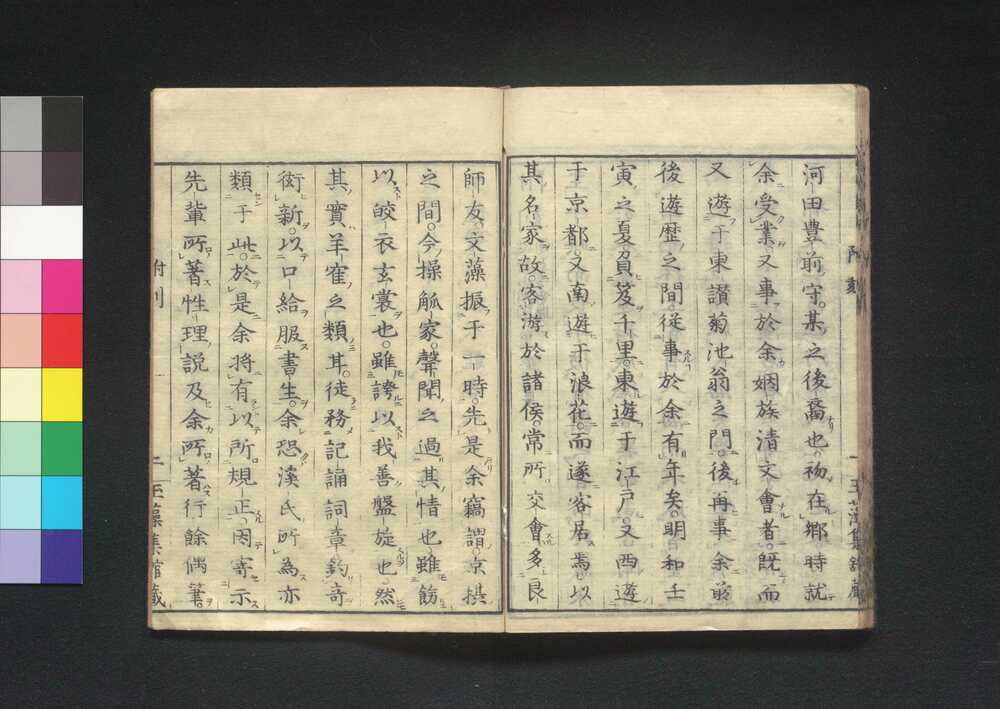 河田豊前守某之後裔也初在郷時就
余受業又事於余姻族清文會者既而
又遊于東讃菊池翁之門後再事余最
後遊歴之間從事於余有年矣明和壬
寅之夏負笈千里東遊于江戸又西遊
于京都又南遊于浪花而遂客居焉以
其名家故客游於諸侯常所交會多良
師友文藻振于一時先是余竊謂京摂
之間今操觚家聲聞之過其情也雖飾
以皎衣玄裳也雖誇以我善盤旋也然
其實羊䧿之類耳徒務記誦詞章釣奇
衒新以口給服書生余恐溪氏所為亦
類于此於是余將有以所規正因寄示
先輩所著性理説及余所著行餘偶筆
附刻
二 玉藻集館藏